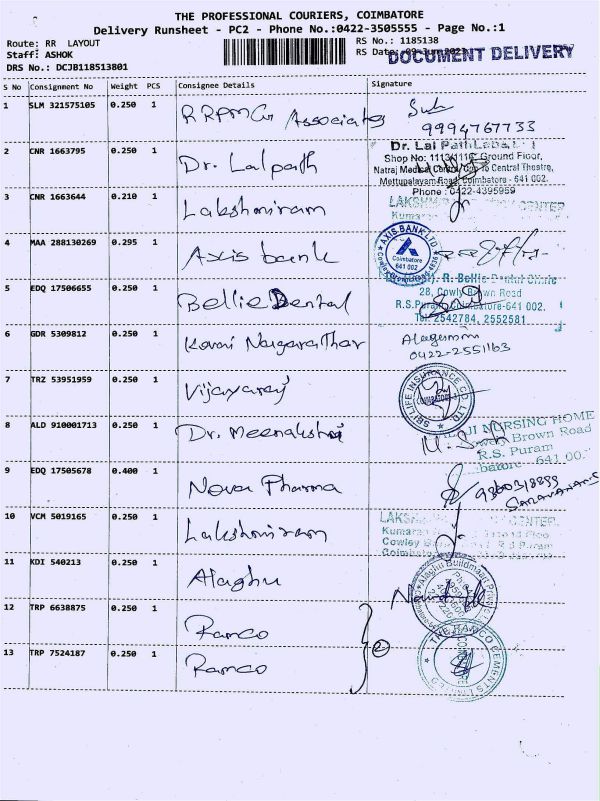 THE PROFESSIONAL COURIERS, COIMBATORE
Delivery Runsheet - PC2 - Phone No.:0422-3505555 - Page No.:1
Route: RR LAYOUT RS No.: 1185138
Staff: ASHOK RS Date: 09-Jun-2023 DOCUMENT DELIVERY
DRS No.: DCJB118513801
S No Consignment No Weight PCS Consignee Details Signature
1 SLM 321575105 0.250 1 RRPMG Associates
9994767733
2 CNR 1663795 0.250 1 Dr. Lalpath Dr. Lal PathLabs
Shop No: 1113/1116, Ground Floor,
Natraj Medical Centre, Opp to Central Theatre,
Mettupalayam Road, Coimbatore - 641 002.
Phone: 0422-4395959
3 CNR 1663644 0.210 1 Lakshmiram LAKSHM CENTER
Kumara
4 MAA 288130269 0.295 1 Axis bank AXIS BANK LTD
Coimbatore
641 002
5 EDQ 17506655 0.250 1 Bellie Dental R. Bellie Dental Clinic
28, Cowly Brown Road
R.S.Puram, Coimbatore-641 002.
Tel: 2542784, 2552581
6 GDR 5309812 0.250 1 Kovai Nagarathar
0422-2551163
7 TRZ 53951959 0.250 1 Vijayaraj SBI LIFE INSURANCE CO. LTD
8 ALD 910001713 0.250 1 Dr. Meenakshi NURSING HOME
Brown Road
R.S. Puram
641 00
9 EDQ 17505678 0.400 1 Nova Pharma
SARAVANAN
10 VCM 5019165 0.250 1 Lakshmiram LAKS CENTER
Kumara
Cowley
Coimbat
11 KDI 540213 0.250 1 Alaghu Alaghu Buildmaart
12 TRP 6638875 0.250 1 Ramco
2
13 TRP 7524187 0.250 1 Ramco THE RAMCO CEMENTS LIMITED